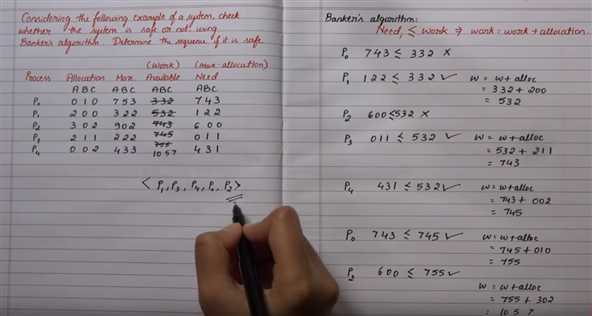 Considering the following example of a system, check
whether the system is safe or not using
Banker's algorithm. Determine the sequence if it is safe.
(Work) (max-allocation)
Process Allocation Max Available Need
A B C A B C A B C A B C
P₀ 0 1 0 7 5 3 332 7 4 3
P₁ 2 0 0 3 2 2 532 1 2 2
P₂ 3 0 2 9 0 2 743 6 0 0
P₃ 2 1 1 2 2 2 745 0 1 1
P₄ 0 0 2 4 3 3 755 4 3 1
10 5 7
< P₁, P₃, P₄, P₀, P₂ >
Banker's algorithm:
Need, ≤ work ⇒ work = work + allocation.
P₀ 743 ≤ 332 ×
P₁ 122 ≤ 332 ✓ W = W + alloc
= 332 + 200
= 532
P₂ 600 ≤ 532 ×
P₃ 011 ≤ 532 ✓ W = W + alloc
= 532 + 211
= 743
P₄ 431 ≤ 532 ✓ W = W + alloc
= 743 + 002
= 745
P₀ 743 ≤ 745 ✓ W = W + alloc
= 745 + 010
= 755
P₂ 600 ≤ 755 ✓ W = W + alloc
= 755 + 302
= 10 5 7